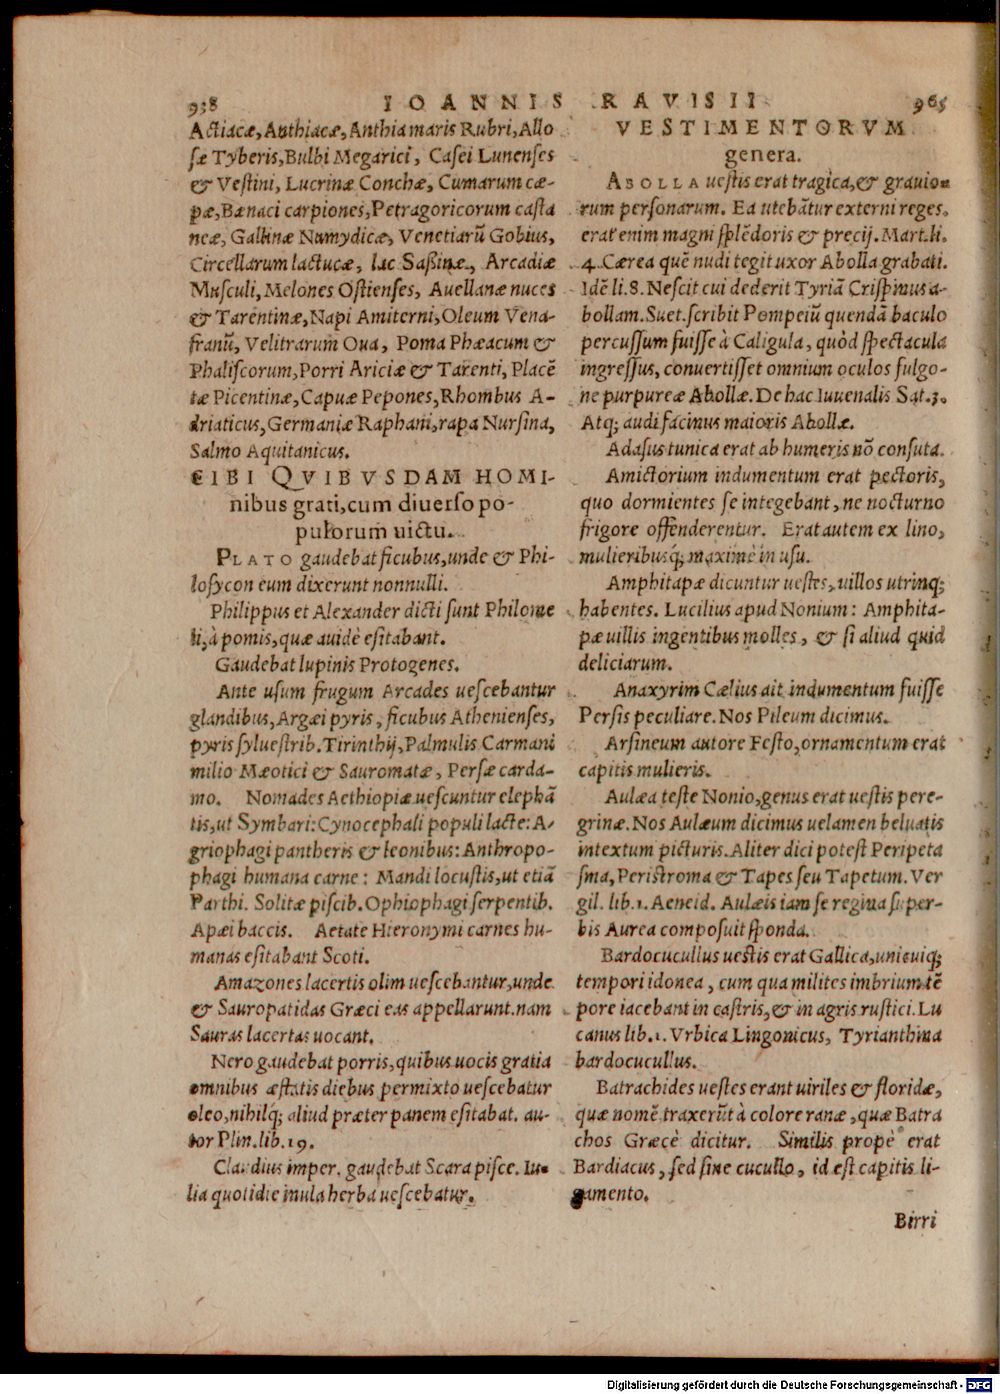 938 IOANNIS RAVISII 965
Actiacæ, Anthiacæ, Anthia maris Rubri, Allo
ſæ Tyberis, Bulbi Megarici, Caſei Lunenſes
& Veſtini, Lucrinæ Conchæ, Cumarum cæ-
pæ, Bænaci carpiones, Petragoricorum caſta
neæ, Gallinæ Numydicæ, Venetiarũ Gobius,
Circellarum lactucæ, lac Saßinæ, Arcadiæ
Muſculi, Melones Oſtienſes, Auellanæ nuces
& Tarentinæ, Napi Amiterni, Oleum Vena-
franũ, Velitrarum Oua, Poma Phæacum &
Phaliſcorum, Porri Ariciæ & Tarenti, Placẽ
tæ Picentinæ, Capuæ Pepones, Rhombus A-
driaticus, Germaniæ Raphani, rapa Nurſina,
Salmo Aquitanicus.
CIBI QVIBVSDAM HOMI-
nibus grati, cum diuerſo po-
pulorum uictu.
PLATO gaudebat ficubus, unde & Phi-
loſycon eum dixerunt nonnulli.
Philippus et Alexander dicti ſunt Philome
li, à pomis, quæ auidè eſitabant.
Gaudebat lupinis Protogenes.
Ante uſum frugum Arcades ueſcebantur
glandibus, Argæi pyris, ficubus Athenienſes,
pyris ſylueſtrib. Tirinthij, Palmulis Carmani
milio Mæotici & Sauromatæ, Perſæ carda-
mo. Nomades Aethiopiæ ueſcuntur elephã
tis, ut Symbari: Cynocephali populi lacte: A-
griophagi pantheris & leonibus: Anthropo-
phagi humana carne: Mandi locuſtis, ut etiã
Parthi. Solitæ piſcib. Ophiophagi ſerpentib.
Apæi baccis. Aetate Hieronymi carnes hu-
manas eſitabant Scoti.
Amazones lacertis olim ueſcebantur, unde
& Sauropatidas Græci eas appellarunt. nam
Sauras lacertas uocant.
Nero gaudebat porris, quibus uocis gratia
omnibus æſtatis diebus permixto ueſcebatur
oleo, nihilq; aliud præter panem eſitabat. au-
tor Plin. lib. 19.
Claudius imper. gaudebat Scara piſce. Iu-
lia quotidie inula herba ueſcebatur.
VESTIMENTORVM
genera.
ABOLLA ueſtis erat tragica, & grauio-
rum perſonarum. Ea utebãtur externi reges,
erat enim magni ſplẽdoris & precij. Mart. li.
4. Cærea quẽ nudi tegit uxor Abolla grabati.
Idẽ li. 8. Neſcit cui dederit Tyriã Criſpinus a-
bollam. Suet. ſcribit Pompeiũ quendã baculo
percuſſum fuiſſe à Caligula, quòd ſpectacula
ingreſſus, conuertiſſet omnium oculos fulgo-
ne purpureæ Abollæ. De hac Iuuenalis Sat. 3.
Atq; audi facinus maioris Abollæ.
Adaſus tunica erat ab humeris nõ conſuta.
Amictorium indumentum erat pectoris,
quo dormientes ſe integebant, ne nocturno
frigore offenderentur. Erat autem ex lino,
mulieribusq; maximè in uſu.
Amphitapæ dicuntur ueſtes, uillos utrinq;
habentes. Lucilius apud Nonium: Amphita-
pæ uillis ingentibus molles, & ſi aliud quid
deliciarum.
Anaxyrim Cælius ait indumentum fuiſſe
Perſis peculiare. Nos Pileum dicimus.
Arſineum autore Feſto, ornamentum erat
capitis mulieris.
Aulæa teſte Nonio, genus erat ueſtis pere-
grinæ. Nos Aulæum dicimus uelamen beluatis
intextum picturis. Aliter dici poteſt Peripeta
ſma, Periſtroma & Tapes ſeu Tapetum. Ver
gil. lib. 1. Aeneid. Aulæis iam ſe regina ſuper-
bis Aurea compoſuit ſponda.
Bardocucullus ueſtis erat Gallica, unicuiq;
tempori idonea, cum qua milites imbrium tẽ
pore iacebant in caſtris, & in agris ruſtici. Lu
canus lib. 1. Vrbica Lingonicus, Tyrianthina
bardocucullus.
Batrachides ueſtes erant uiriles & floridæ,
quæ nomẽ traxerũt à colore ranæ, quæ Batra
chos Græcè dicitur. Similis propè erat
Bardiacus, ſed ſine cucullo, id eſt capitis li-
gamento.
Birri
Digitalisierung gefördert durch die Deutsche Forschungsgemeinschaft - DFG